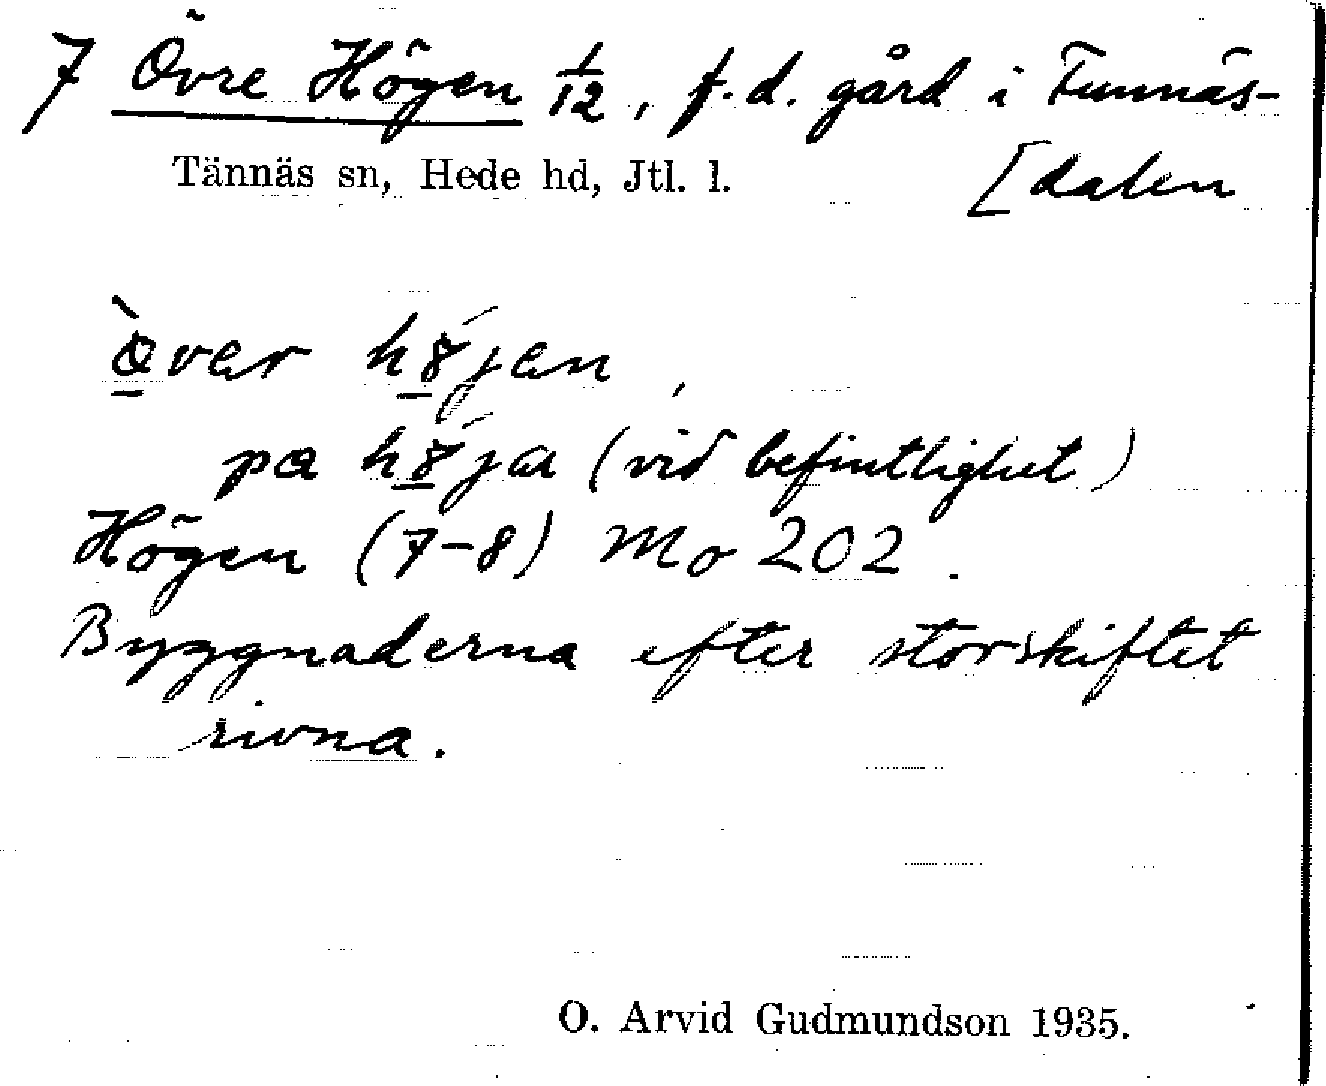 7 Övre Högen 1/12, f.d. gård i Funnäs-
Tännäs sn, Hede hd, Jtl. l. [dalen
över höjen,
pa höja (vid befintlighet)
Högen (7-8) Mo 202.
Byggnaderna efter storskiftet
rivna.
O. Arvid Gudmundson 1935.